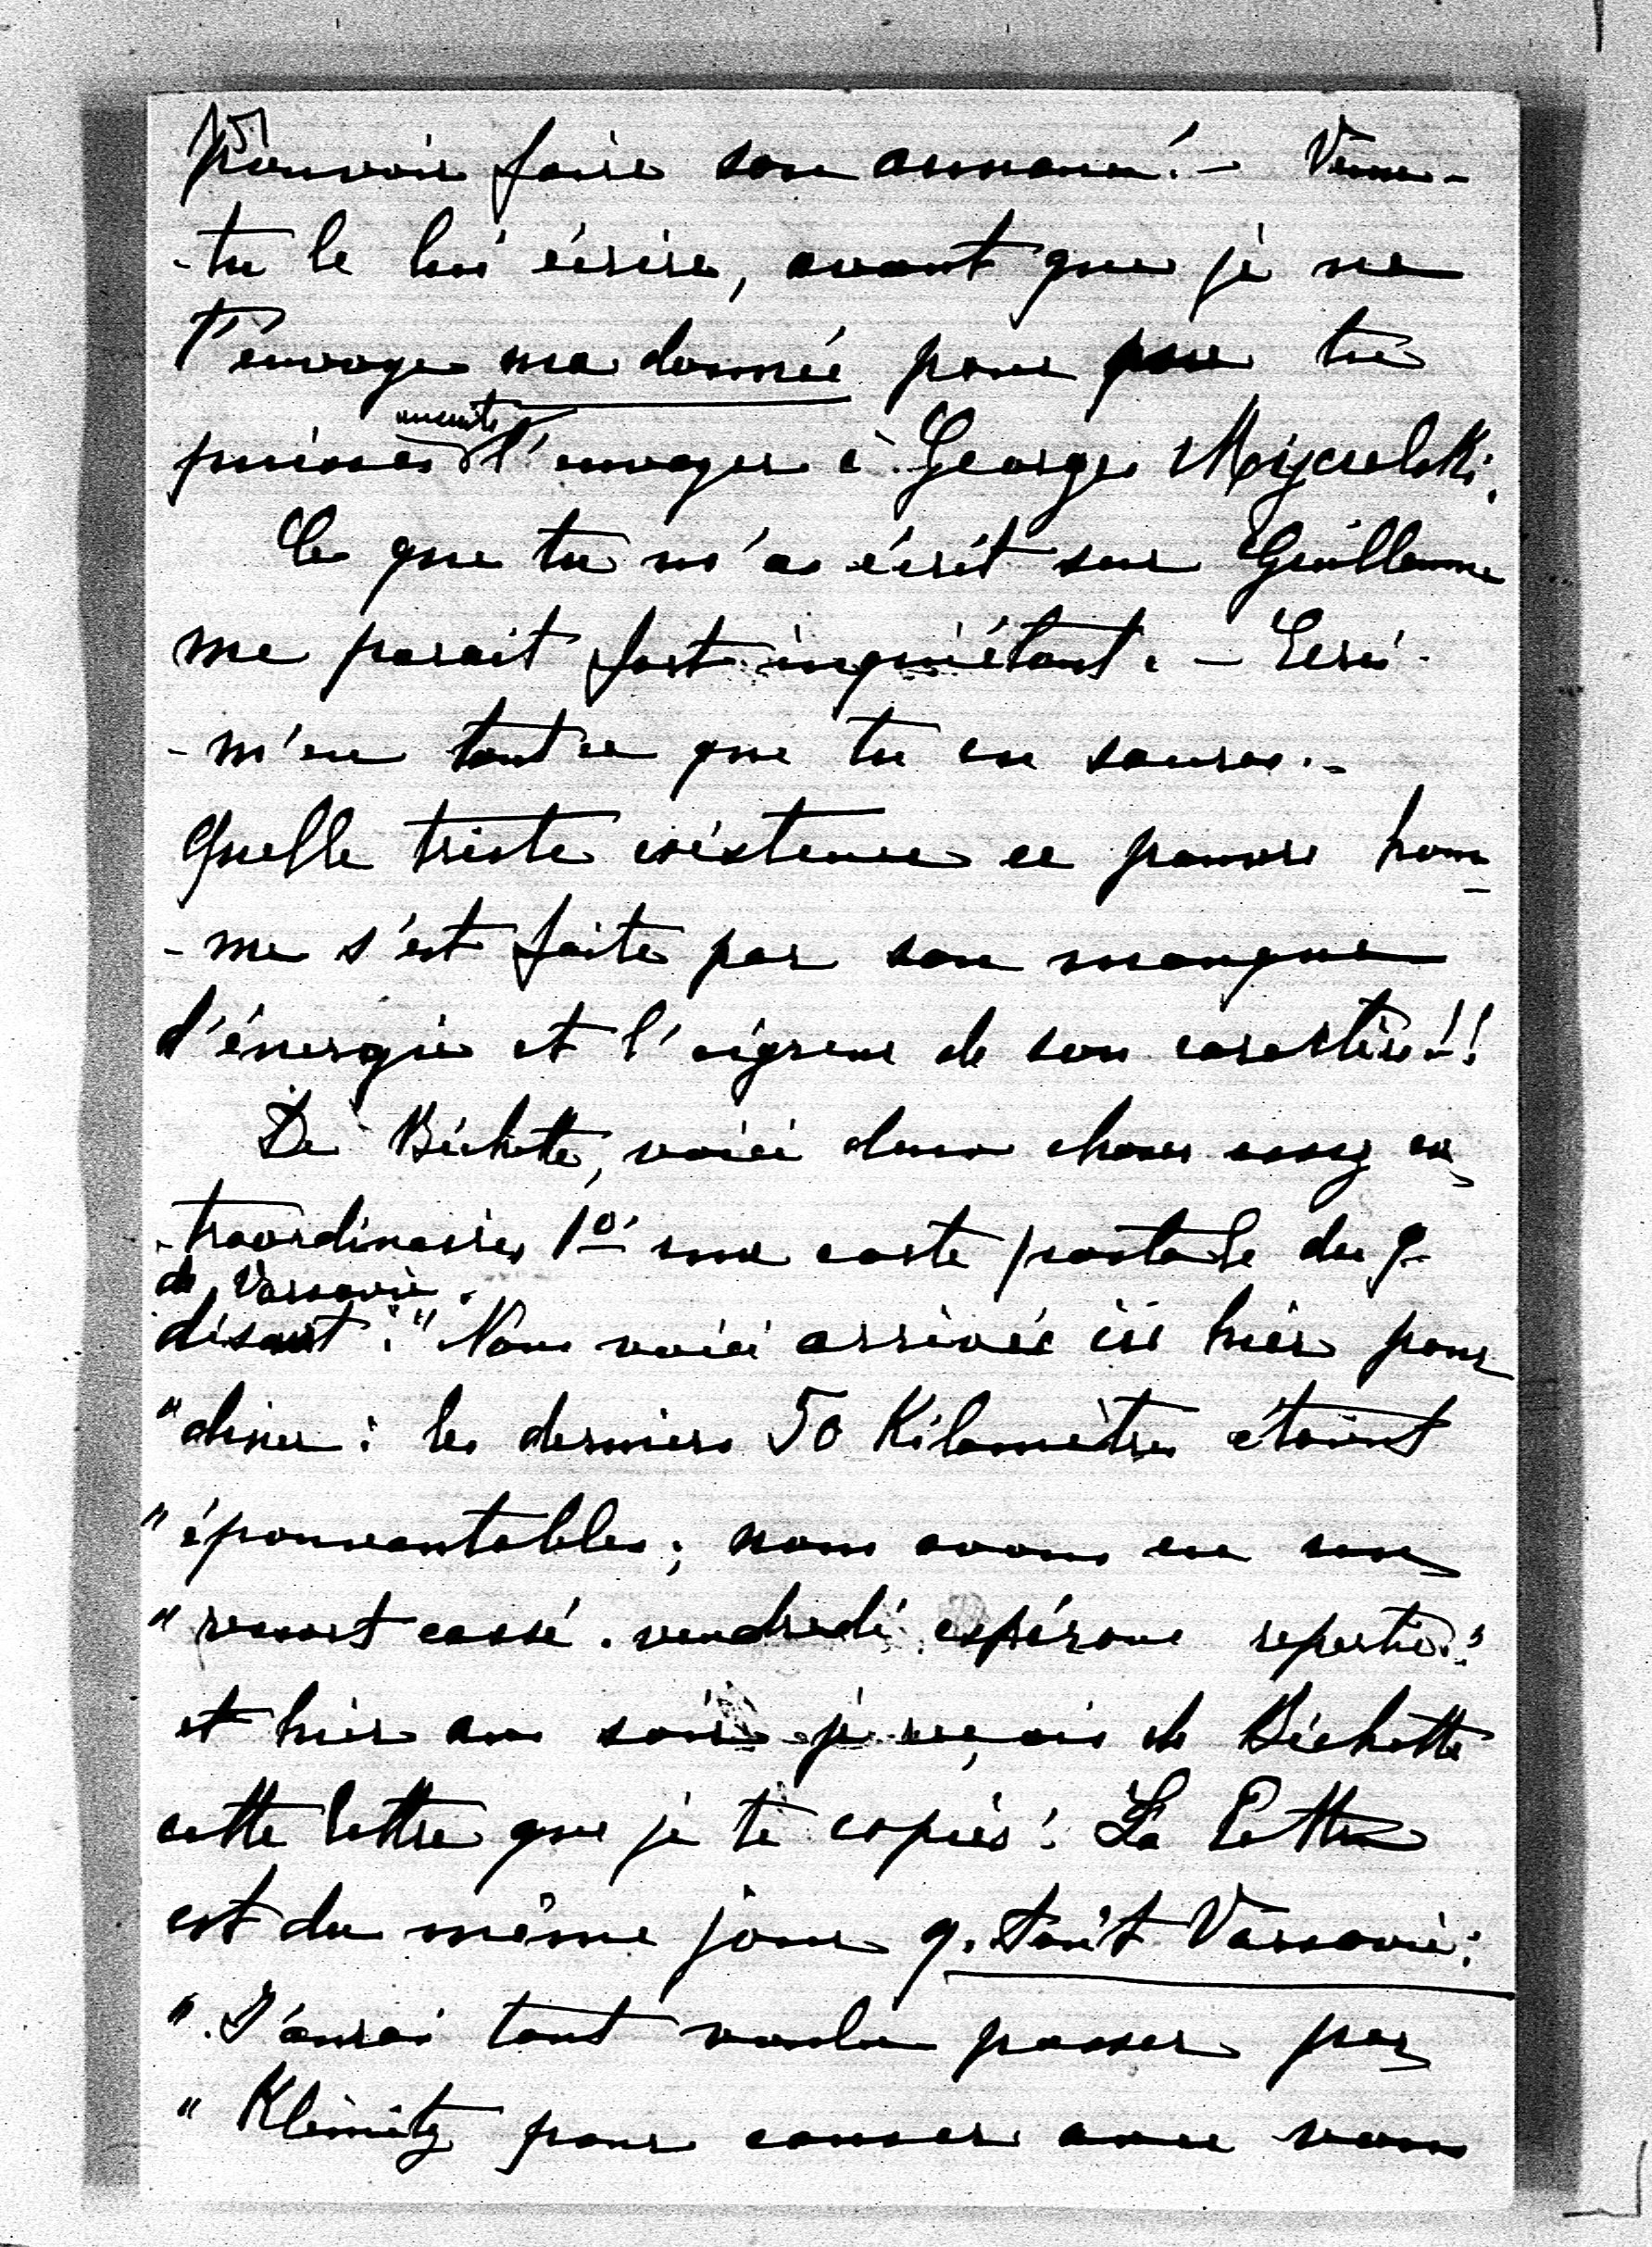 15)
pouvoir faire son annonce! – Veux-
-tu le lui écrire, avant que je ne
t'envoye ma donnée pour que tu
puisses ensuite l'envoyer à George Mycielski.
Ce que tu m'as écrit sur Guillaume
me parait fort inquiétant. – Ecris-
-m'en tout ce que tu en sauras. –
Quelle triste existence ce pauvre hom-
-me s'est faite par son manque
d'énergie et l'aigreur de son caractère!!
De Bichette, voici deux choses assez ex-
-traordinaires 1º une carte postale du 9
de Varsovie.
disant: "Nous voici arrivés ici hier pour
"diner: les derniers 50 Kilomètres étaient
"épouvantables; nous avons eu un
"ressort cassé. vendredi espérons repartir."
et hier au soir je reçois de Bichette
cette lettre que je te copies: La lettre
est du même jour 9. Août Varsovie:
"J'aurai tant voulu passer par
"Klemitz pour causer avec vous